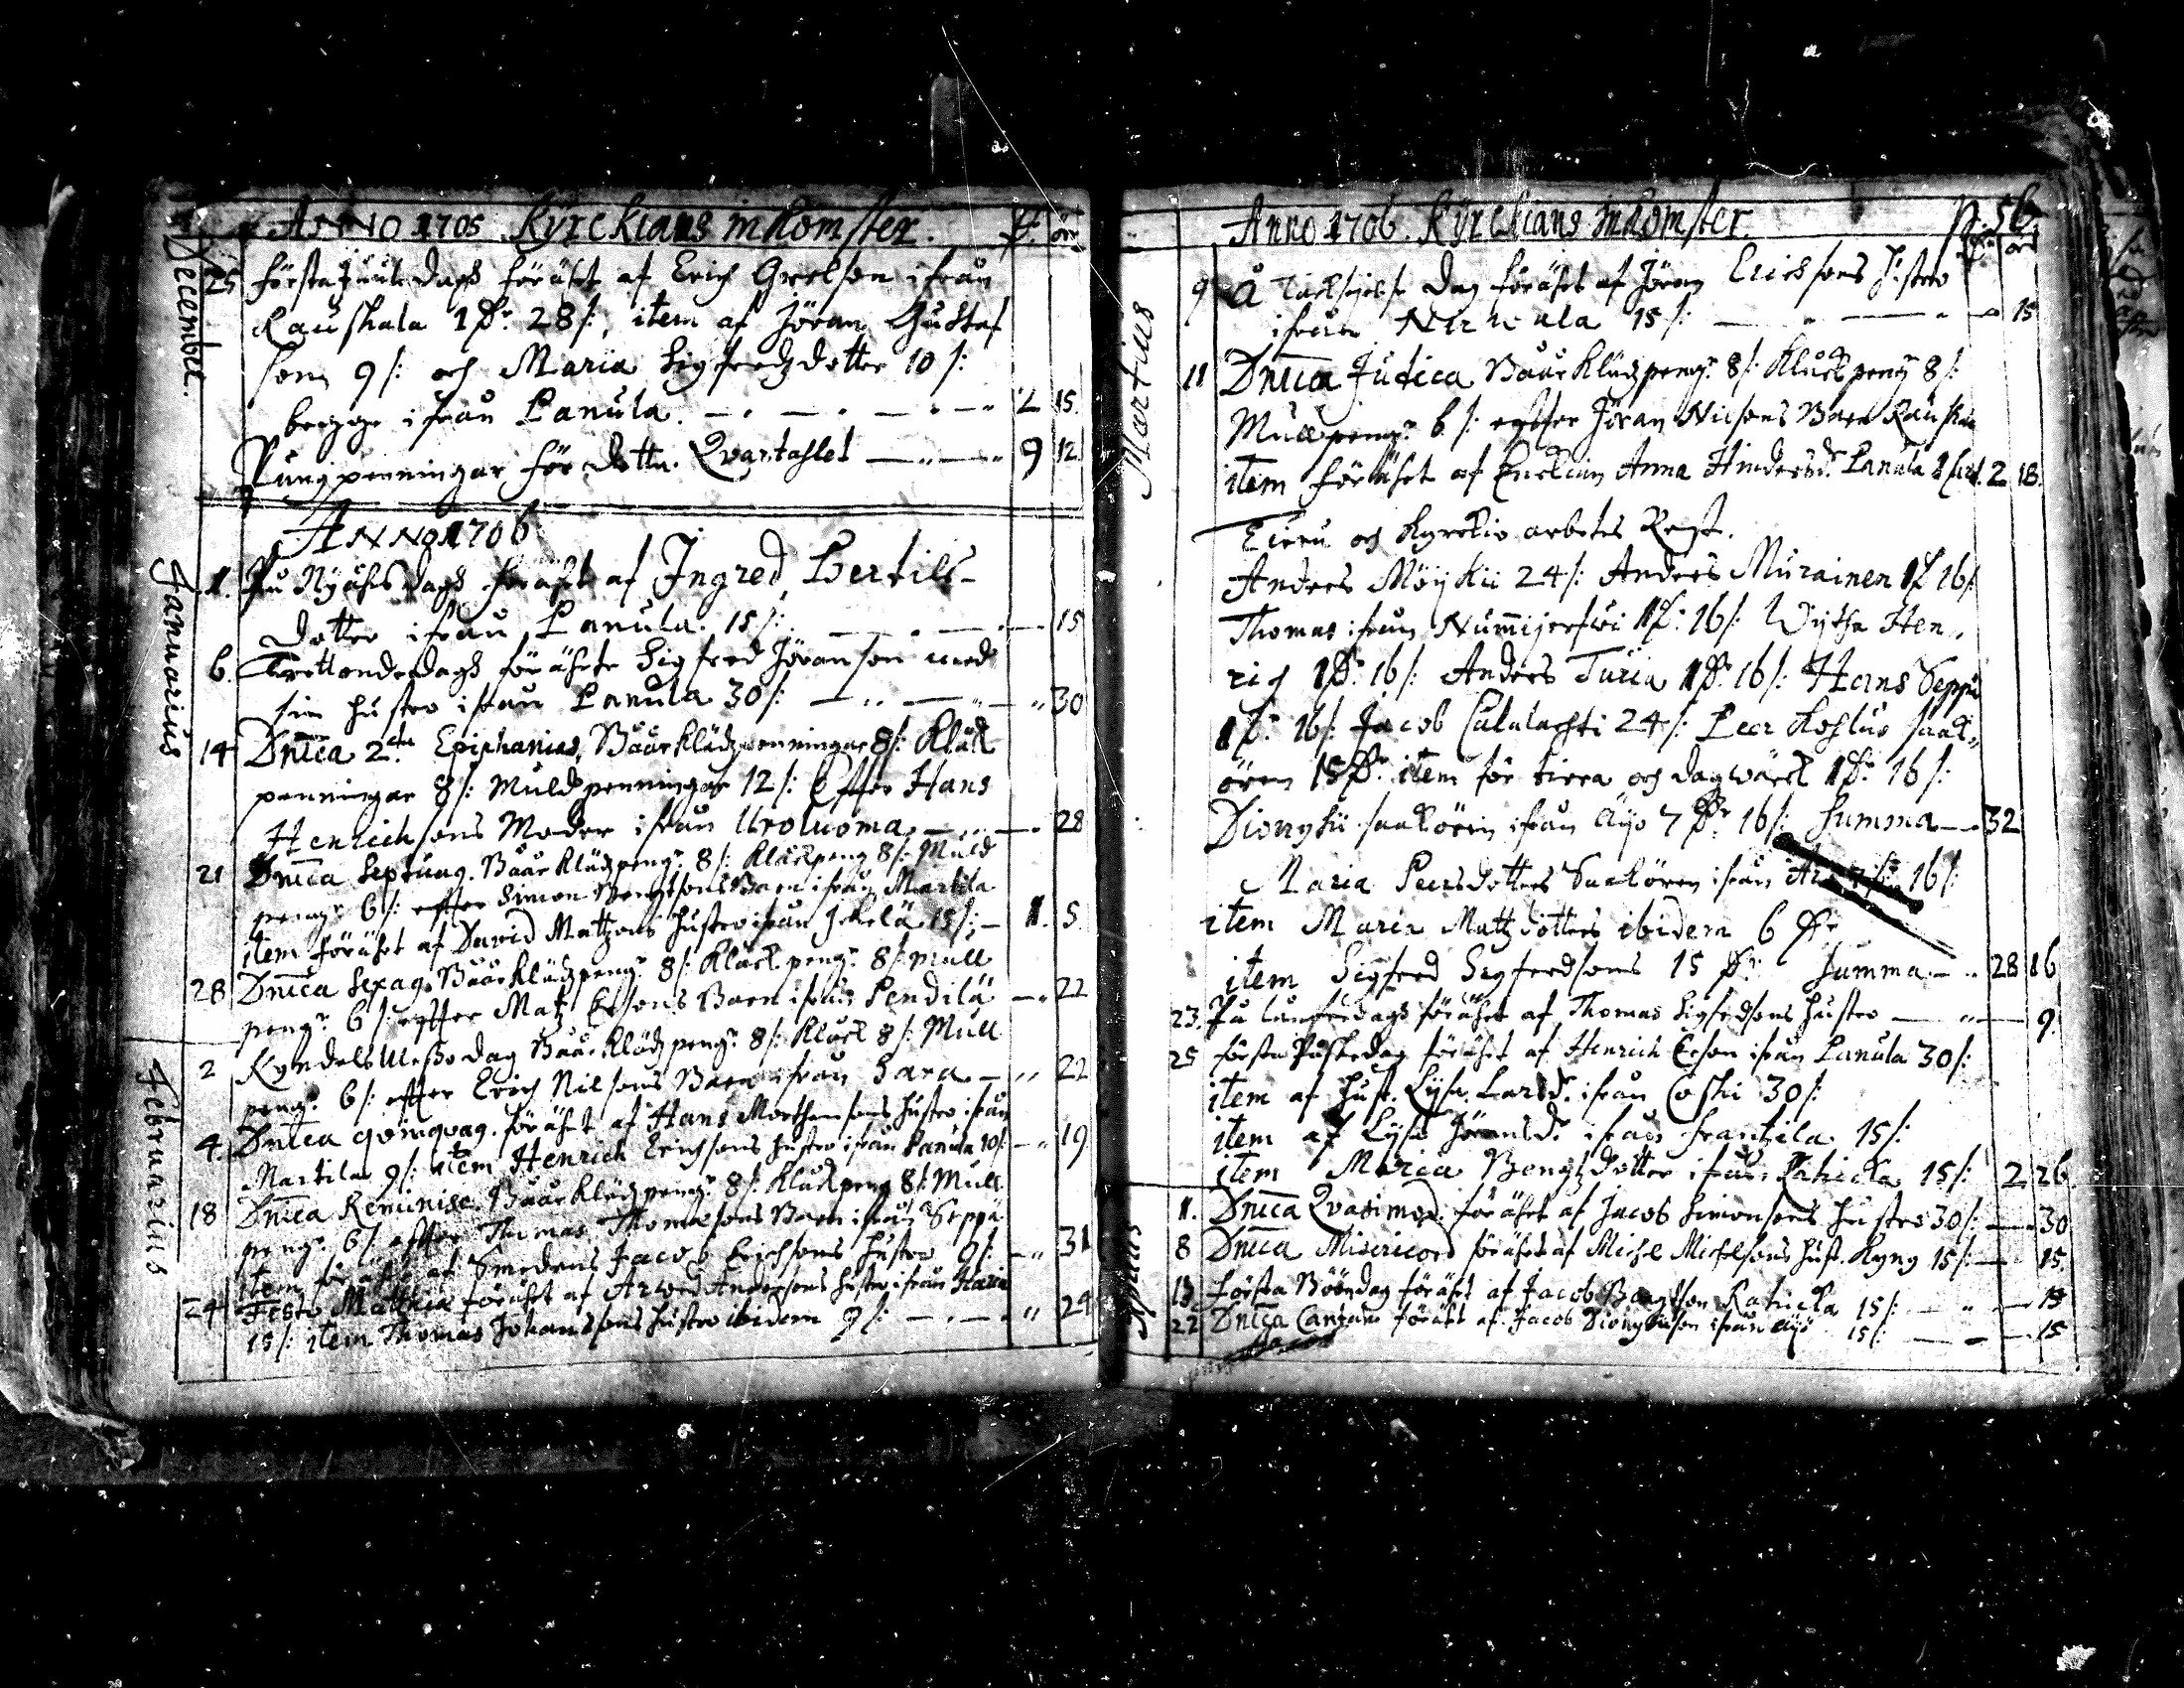 ANNO 1705. Kyrckians inkomster. P: öre
December.
25 första Juuledags föräht af Erich Grelson ifrån
Rauskala 1 P: 28 /: item af Jöran Gustaf
son 9 /: och Maria Sigfredzdotter 10 /:
begge ifrån Lanula. 2 15.
Pungpenningar för detta Qvartahlet 9 12.
ANNO 1706
Januarius
1. På Nyåhrsdagh föräht af Ingred Bertils-
dotter ifrån Lanula. 15 /: 15
6. Trettondedagh förährte Sigfred Jöranson med
sin hustro ifrån Lanula 30 /: 30
14 Dnica 2da Epiphanias, Båårklädzpenningar 8 /: Klåck
penningar 8 /: Muldpenningar 12 /: Effter Hans
Henrichsons Moder ifrån Uroluoma 28
21 Dnica Septuag. Båårklädzpengr 8 /: Klåckpeng 8 /: Muld
pengr 6 /: effter Simon Bengtsons Barn ifrån Martila
item föräht af David Matzons hustro ifrån Jokelä 15 /: 1. 5.
28 Dnica Sexag. Båårklädzpengr 8 /: Klåckpengr 8 /: mull
pengr 6 /: effter Matz Ersons Barn ifrån Pendilä 22
Februarius
2 Kyndelsmesso dag Båårklädzpengr 8 /: Klåck 8 /: Mull
pengr 6 /: effter Erich Nilsons Barn ifrån Sara 22
4. Dnica qvinqvag. föräht af Hans Morthensons hustro ifrån
Martila 9 /: item Henrich Erichsons hustro ifrån Lanula 10 /: 19
18 Dnica Reminisc. Båårklädzpengr 8 /: Klåckpeng 8 /: Mull
pengr 6 /: effter Thomas Thomasons Barn ifrån Seppä
item föräht af Smedens Jacob Erichsons hustro 9 /: 31
24 Festo Matthiæ föräht af Arwed Andersons hustro ifrån Haria
15 /: item Thomas Johanssons hustro ibidem 9 /: 24
Anno 1706. Kyrckians Inkomster. p. 56
öre
Martius
9 å Tacksejelse Dag föräht af Jöran Erichsons hustro
ifrån 15 /: 15
11 Dnica Judica Båårklädzpengr 8 /: Klåckpengr 8 /:
Mullpengr 6 /: effter Jöran Nilsons Barn Rauskala
item föräht af Enckian Anna Hindersdr Lanula 2 18.
Tiäru och Kyrckio arbetes Rest.
Anders Möykii 24 /: Anders Murainen 1 P 16 /:
Thomas ifrån Nummijerfwi 1 P: 16 /: Hen-
rich 1 P: 16 /: Anders Turia 1 P: 16 /: Hans Seppä
1 P: 16 /: Jacob Calalachti 24 /: Peer Kohluo saak-
ören 15 P: item för tiera och dagwärck 1 P: 16 /:
Dionysii saakören ifrån Äijö 7 P: 16 /: Summa 32
Maria Peersdotters Saakören ifrån 16 /:
item Maria Matzdotters ibidem 6 P:
item Sigfred Sigfredsons 15 P: Summa 28 16
23. På Långfredags föräht af Thomas Sigfredsons hustro 9.
25 första Påskedag föräht af Henrich Erson ifrån Lanula 30 /:
item af hust. Lysa Larsdr ifrån Coski 30 /:
item af Lysa Jöransdr ifrån Frantzila 15 /:
item Maria Bengtzdotter ifrån Rahicka 15 /: 2 26.
Aprilis
1. Dnica Qvasimod. föräht af Jacob Simonsons hustro 30 /: 30
8 Dnica Misericord föräht af Michel Michelsons hust. Kyny 15 /: 15.
13 Första Böndag föräht af Jacob Bengtson Rahicka 15 /: 15
22 Dnica Cantate föräht af Jacob Dionysiuson ifrån Äijö 15 /: 15